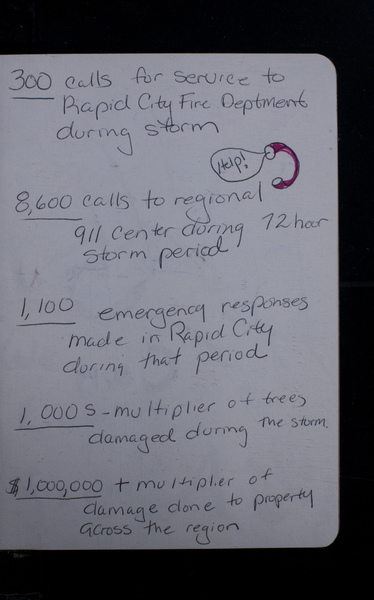 300 calls for service to
Rapid City Fire Deptment
during storm
Help!
8,600 calls to regional
911 center during 72 hour
storm period
1,100 emergency responses
made in Rapid City
during that period
1,000s - multiplier of trees
damaged during the storm.
$1,000,000 + multiplier of
damage done to property
across the region